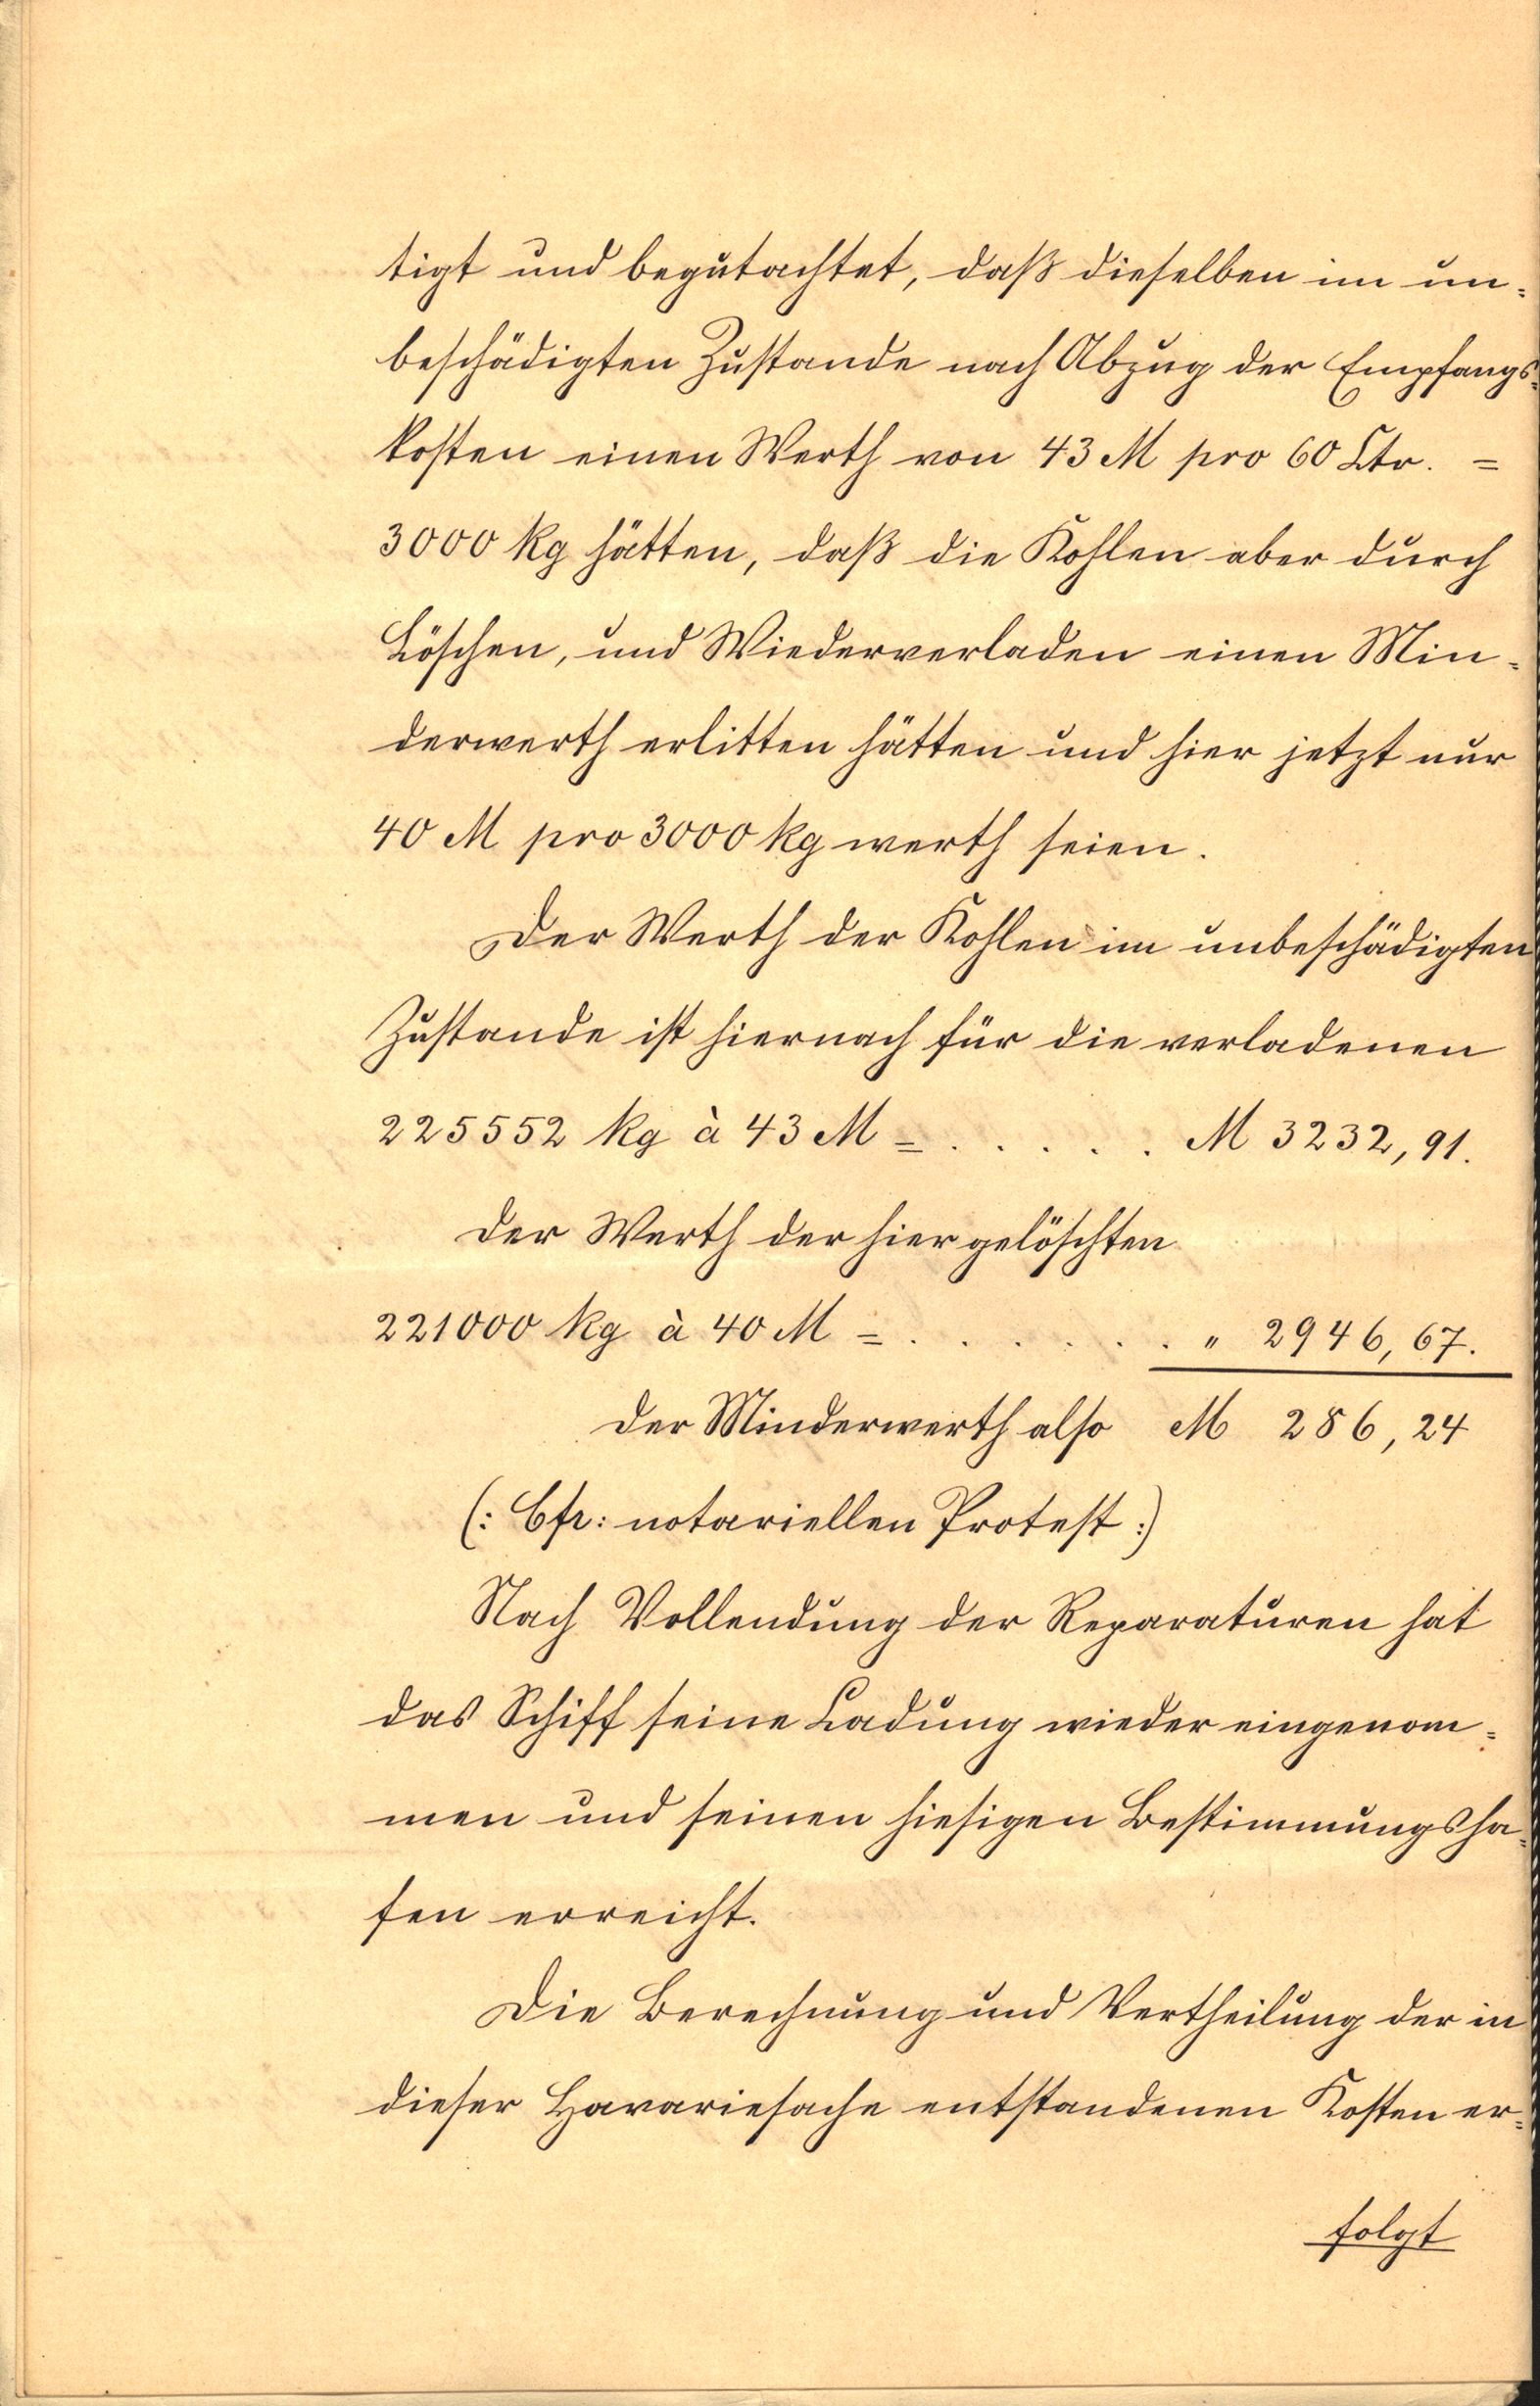 tigt und begutachtet, daß dieselben im un-
beschädigten Zustande nach Abzug der Empfangs-
kosten einen Werth von 43 M pro 60 Ctr. =
3000 kg hätten, daß die Kohlen aber durch
Löschen, und Wiederverladen einen Min-
derwerth erlitten hätten und hier jetzt nur
40 M pro 3000 kg werth seien.
Der Werth der Kohlen im unbeschädigten
Zustande ist hiernach für die verladenen
225552 kg à 43 M = . . . . . M 3232,91.
der Werth der hier gelöschten
221000 kg à 40 M = . . . . . . . " 2946,67.
der Minderwerth also M 286,24
(: Cfr: notariellen Protest :)
Nach Vollendung der Reparaturen hat
das Schiff seine Ladung wieder eingenom-
men und seinen hiesigen Bestimmungsha-
fen erreicht.
Die Berechnung und Vertheilung der in
dieser Havariesache entstandenen Kosten er-
folgt